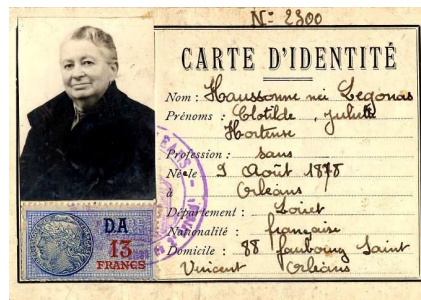 N° 2300
CARTE D'IDENTITÉ
Nom : Haussonne née Legonas
Prénoms : Clotilde, Juliette
Hortense
Profession : sans
Né le 9 Août 1878
à Orléans
Département : Loiret
Nationalité : française
Domicile : 88 faubourg Saint
Vincent Orléans
DA
13
FRANCS